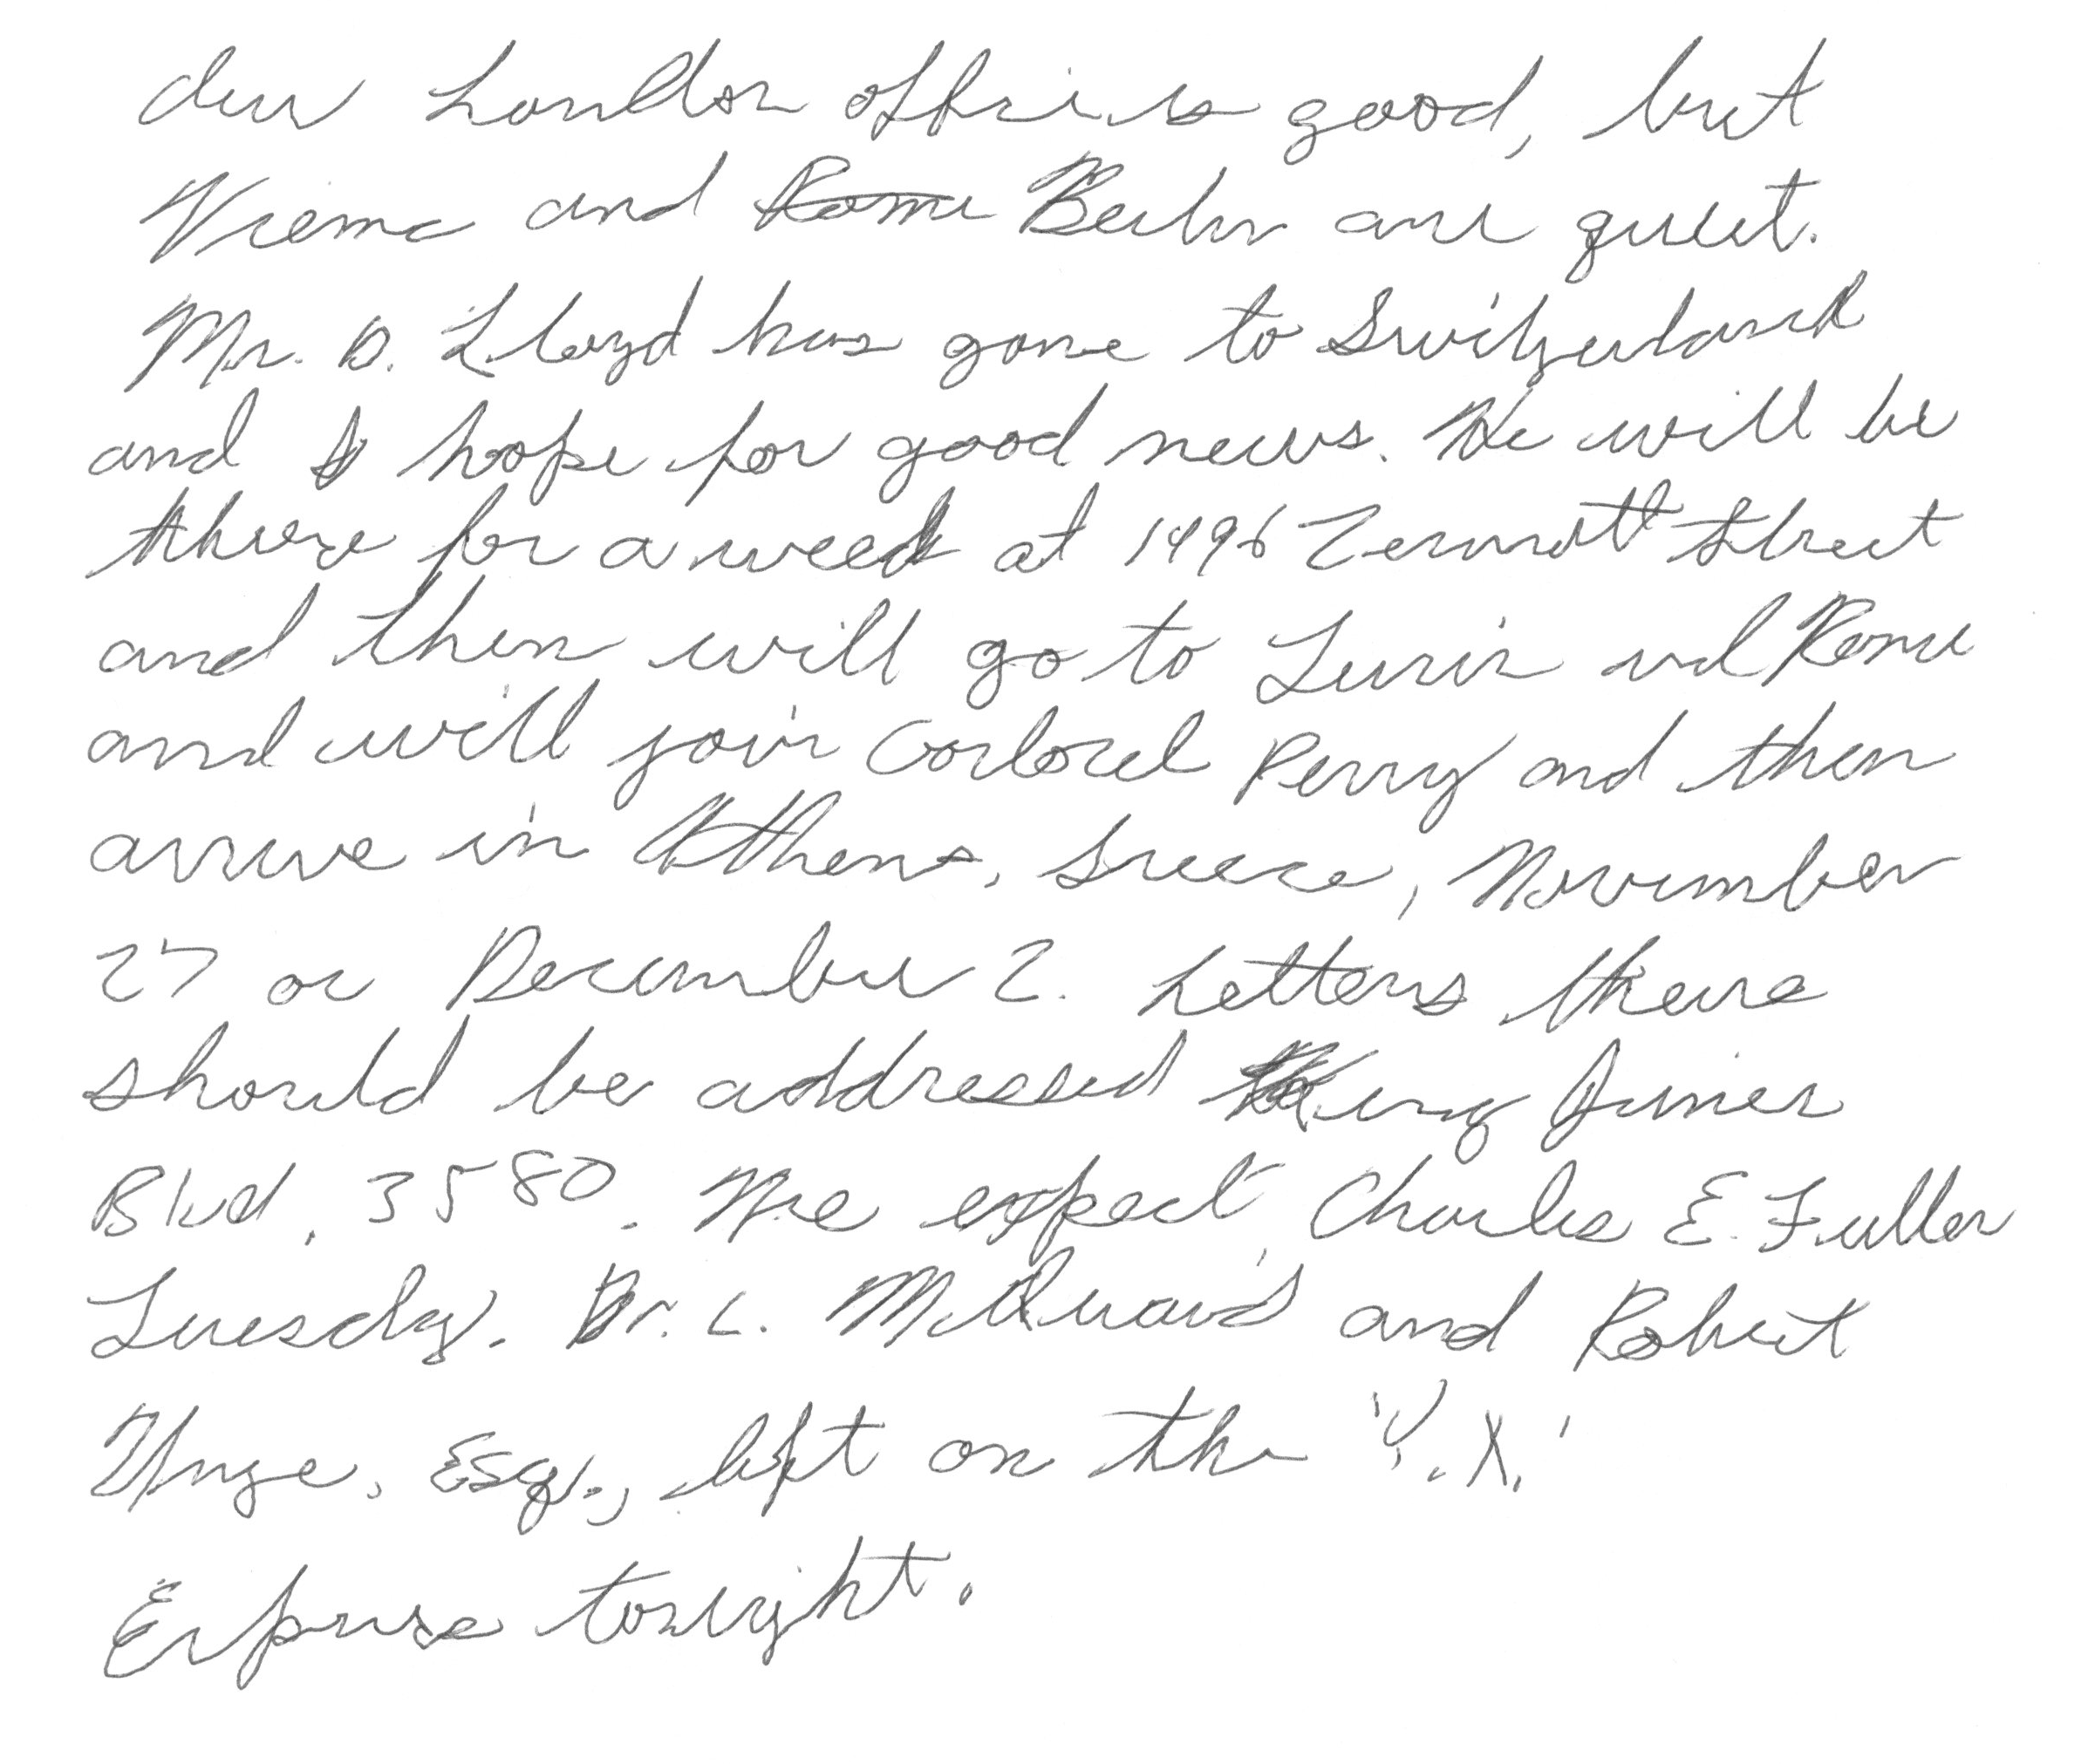 Our London office is good, but
Vienna and Rome Berlin are quiet.
Mr. D. Lloyd has gone to Switzerland
and I hope for good news. He will be
there for a week at 1496 Zermott Street
and then will go to Turin and Rome
and will join Corlonel Perry and then
arrive in Athens, Greece, November
27 or December 2. Letters there
should be addressed King James
Blvd. 3580. We expect Charles E. Fuller
Tuesday. Dr. L. McQuaid and Robert
Unger, Esq., left on the 'Y.X.'
Express tonight.